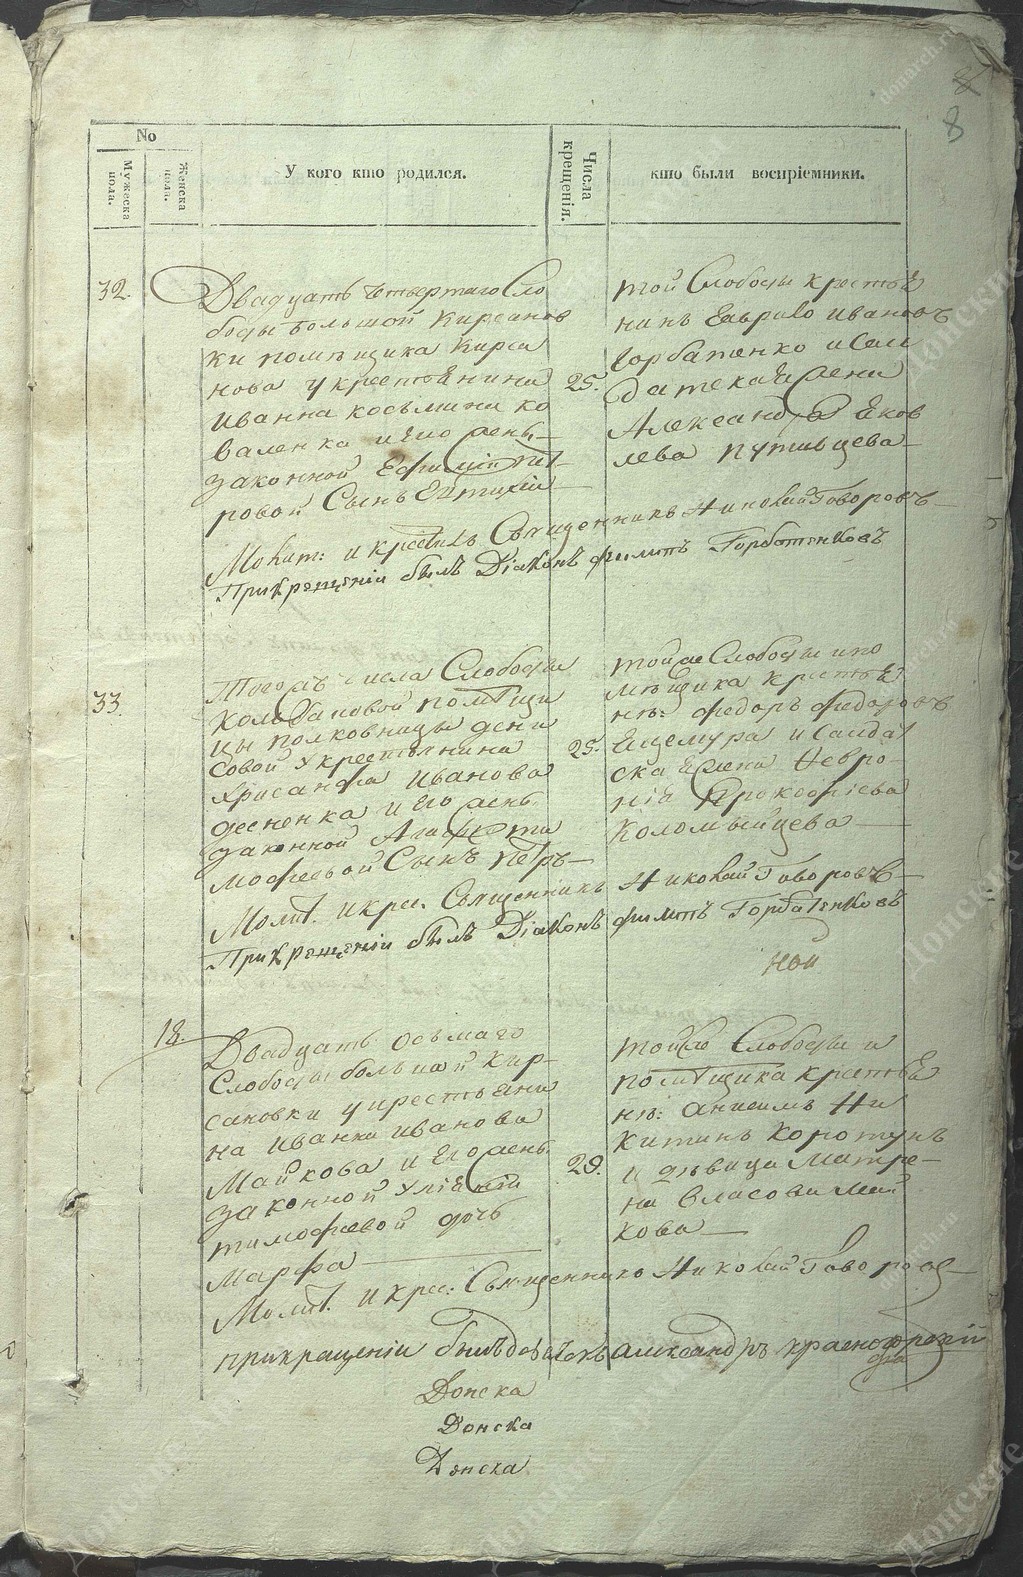 8
8
No
Мужеска пола.
Женска пола.
У кого кто родился.
Числа крещенія.
кто были воспріемники.
32.
Двадцать четвертаго Сло
боды большой Кирсанов
ки помѣщика Кирса
нова у крестьянина
Ивана косьмина ко
валенка и его жены
законной
ровой Сынъ Евтихій
25.
той Слободы крестья
нинъ Гаврило Ивановъ
Горбатенко и Сол
датска жена
Александра Яков
лева путивцева
Молит: и крестилъ Священникъ Николай Говоровъ
При крещеніи былъ Діаконъ филипъ Горбатенковъ
33.
Тогожъ числа Слободы
помѣщи
цы полковницы дени
совой у крестьянина
Хрисанфа Иванова
десненка и Его жены
законной Агафьи ти
мофѣевой Сынъ Петръ
25.
тойже Слободы и по
мѣщика крестья
нъ: федоръ федоровъ
Ещемура и Салда
ска жена Февро
нія Прокофіева
Коломыйцева
Молит. и крес. Священникъ Николай Говоровъ
При крещеніи былъ Діаконъ филипъ Горбатенковъ
18.
Двадцать осьмаго
Слободы большой Кир
сановки у крестьяни
на Ивана Иванова
Майкова и Его жены
законной Уліаніи
тимофѣевой дочь
Марфа
29.
тойже Слободы и
помѣщика крестья
нъ: Анисимъ Ни
китинъ Коротунъ
и дѣвица Матре
на Власова Май
кова
Молит. и крес. Священникъ Николай Говоровъ
при крещеніи былъ дьячокъ александръ
Донска
Донска
Донска